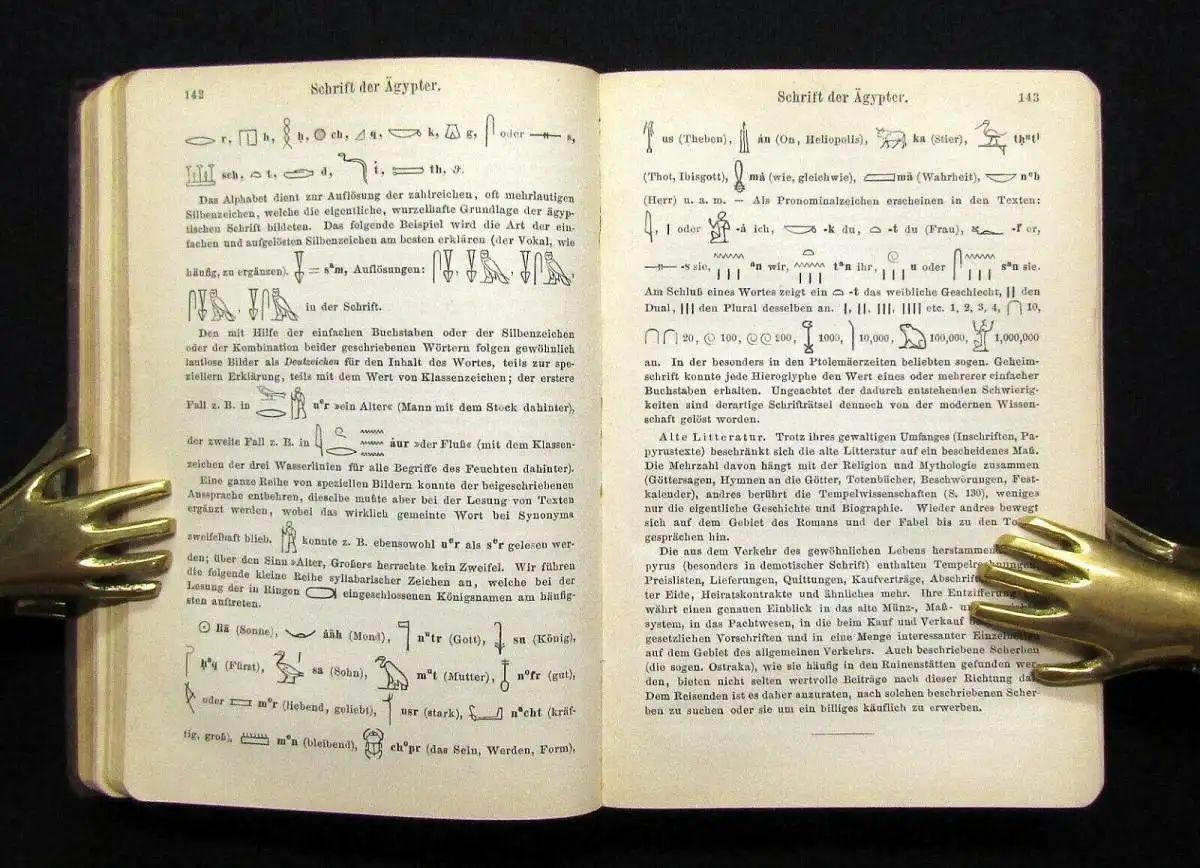 142
Schrift der Ägypter.
r, h, ḥ, ch, q, k, g, oder s,
sch, t, d, ỉ, th, ϑ.
Das Alphabet dient zur Auflösung der zahlreichen, oft mehrlautigen
Silbenzeichen, welche die eigentliche, wurzelhafte Grundlage der ägyp-
tischen Schrift bildeten. Das folgende Beispiel wird die Art der ein-
fachen und aufgelösten Silbenzeichen am besten erklären (der Vokal, wie
häufig, zu ergänzen). = sᵃm, Auflösungen:
in der Schrift.
Den mit Hilfe der einfachen Buchstaben oder der Silbenzeichen
oder der Kombination beider geschriebenen Wörtern folgen gewöhnlich
lautlose Bilder als Deutzeichen für den Inhalt des Wortes, teils zur spe-
ziellern Erklärung, teils mit dem Wert von Klassenzeichen; der erstere
Fall z. B. in uᵉr »ein Alter« (Mann mit dem Stock dahinter),
der zweite Fall z. B. in àur »der Fluß« (mit dem Klassen-
zeichen der drei Wasserlinien für alle Begriffe des Feuchten dahinter).
Eine ganze Reihe von speziellen Bildern konnte der beigeschriebenen
Aussprache entbehren, dieselbe mußte aber bei der Lesung von Texten
ergänzt werden, wobei das wirklich gemeinte Wort bei Synonyma
zweifelhaft blieb. konnte z. B. ebensowohl uᵉr als sᵉr gelesen wer-
den; über den Sinn »Alter, Großer« herrschte kein Zweifel. Wir führen
die folgende kleine Reihe syllabarischer Zeichen an, welche bei der
Lesung der in Ringen eingeschlossenen Königsnamen am häufig-
sten auftreten.
☉ Rā (Sonne), ààh (Mond), nᵘtr (Gott), su (König),
ḥᵃq (Fürst), sa (Sohn), mᵘt (Mutter), nᵒfr (gut),
oder mᵉr (liebend, geliebt), usr (stark), nᵃcht (kräf-
tig, groß), mᵉn (bleibend), chᵒpr (das Sein, Werden, Form),
Schrift der Ägypter.
143
us (Theben), àn (On, Heliopolis), ka (Stier), thᵘtỉ
(Thot, Ibisgott), mà (wie, gleichwie), mā (Wahrheit), nᵉb
(Herr) u. a. m. — Als Pronominalzeichen erscheinen in den Texten:
oder -à ich, -k du, -t du (Frau), -f er,
-s sie, ᵃn wir, tᵃn ihr, u oder sᵃn sie.
Am Schluß eines Wortes zeigt ein -t das weibliche Geschlecht, || den
Dual, ||| den Plural desselben an. |, ||, |||, |||| etc. 1, 2, 3, 4, 10,
20, 100, 200, 1000, 10,000, 100,000, 1,000,000
an. In der besonders in den Ptolemäerzeiten beliebten sogen. Geheim-
schrift konnte jede Hieroglyphe den Wert eines oder mehrerer einfacher
Buchstaben erhalten. Ungeachtet der dadurch entstehenden Schwierig-
keiten sind derartige Schrifträtsel dennoch von der modernen Wissen-
schaft gelöst worden.
Alte Litteratur. Trotz ihres gewaltigen Umfanges (Inschriften, Pa-
pyrustexte) beschränkt sich die alte Litteratur auf ein bescheidenes Maß.
Die Mehrzahl davon hängt mit der Religion und Mythologie zusammen
(Göttersagen, Hymnen an die Götter, Totenbücher, Beschwörungen, Fest-
kalender), andres berührt die Tempelwissenschaften (S. 130), weniges
nur die eigentliche Geschichte und Biographie. Wieder andres bewegt
sich auf dem Gebiet des Romans und der Fabel bis zu den
gesprächen hin.
Die aus dem Verkehr des gewöhnlichen Lebens herstammend
pyrus (besonders in demotischer Schrift) enthalten Tempelrechnungen,
Preislisten, Lieferungen, Quittungen, Kaufverträge, Abschrif
ter Eide, Heiratskontrakte und ähnliches mehr. Ihre Entzifferung
währt einen genauen Einblick in das alte Münz-, Maß-
system, in das Pachtwesen, in die beim Kauf und Verkauf
gesetzlichen Vorschriften und in eine Menge interessanter Einzelheiten
auf dem Gebiet des allgemeinen Verkehrs. Auch beschriebene Scherben
(die sogen. Ostraka), wie sie häufig in den Ruinenstätten gefunden wer-
den, bieten nicht selten wertvolle Beiträge nach dieser Richtung
Dem Reisenden ist es daher anzuraten, nach solchen beschriebenen Scher-
ben zu suchen oder sie um ein billiges käuflich zu erwerben.